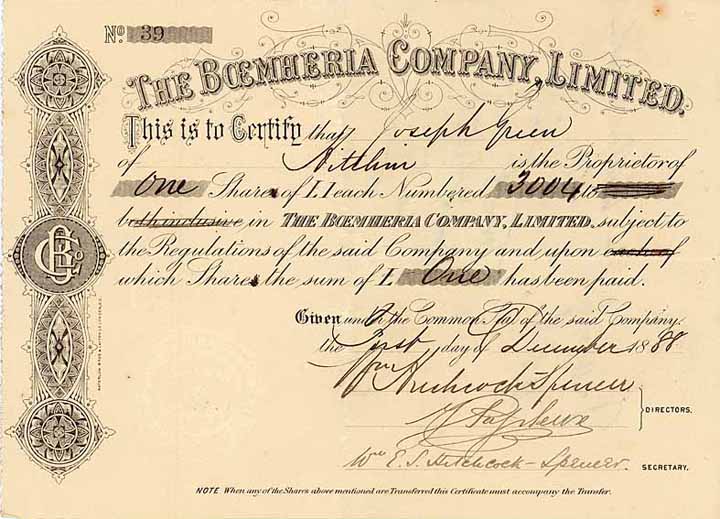 No. 39
THE BŒMHERIA COMPANY, LIMITED.
This is to Certify that Joseph Green
of is the Proprietor of
One Share of £1 each Numbered 3004 to
both inclusive in THE BŒMHERIA COMPANY, LIMITED, subject to
the Regulations of the said Company and upon each of
which Share the sum of £ One has been paid.
Given under the Common Seal of the said Company.
the First day of December 1888
Wm Hitchcock-Spencer
DIRECTORS.
Wm E. S. Hitchcock-Spencer. SECRETARY.
NOTE When any of the Shares above mentioned are Transferred this Certificate must accompany the Transfer.